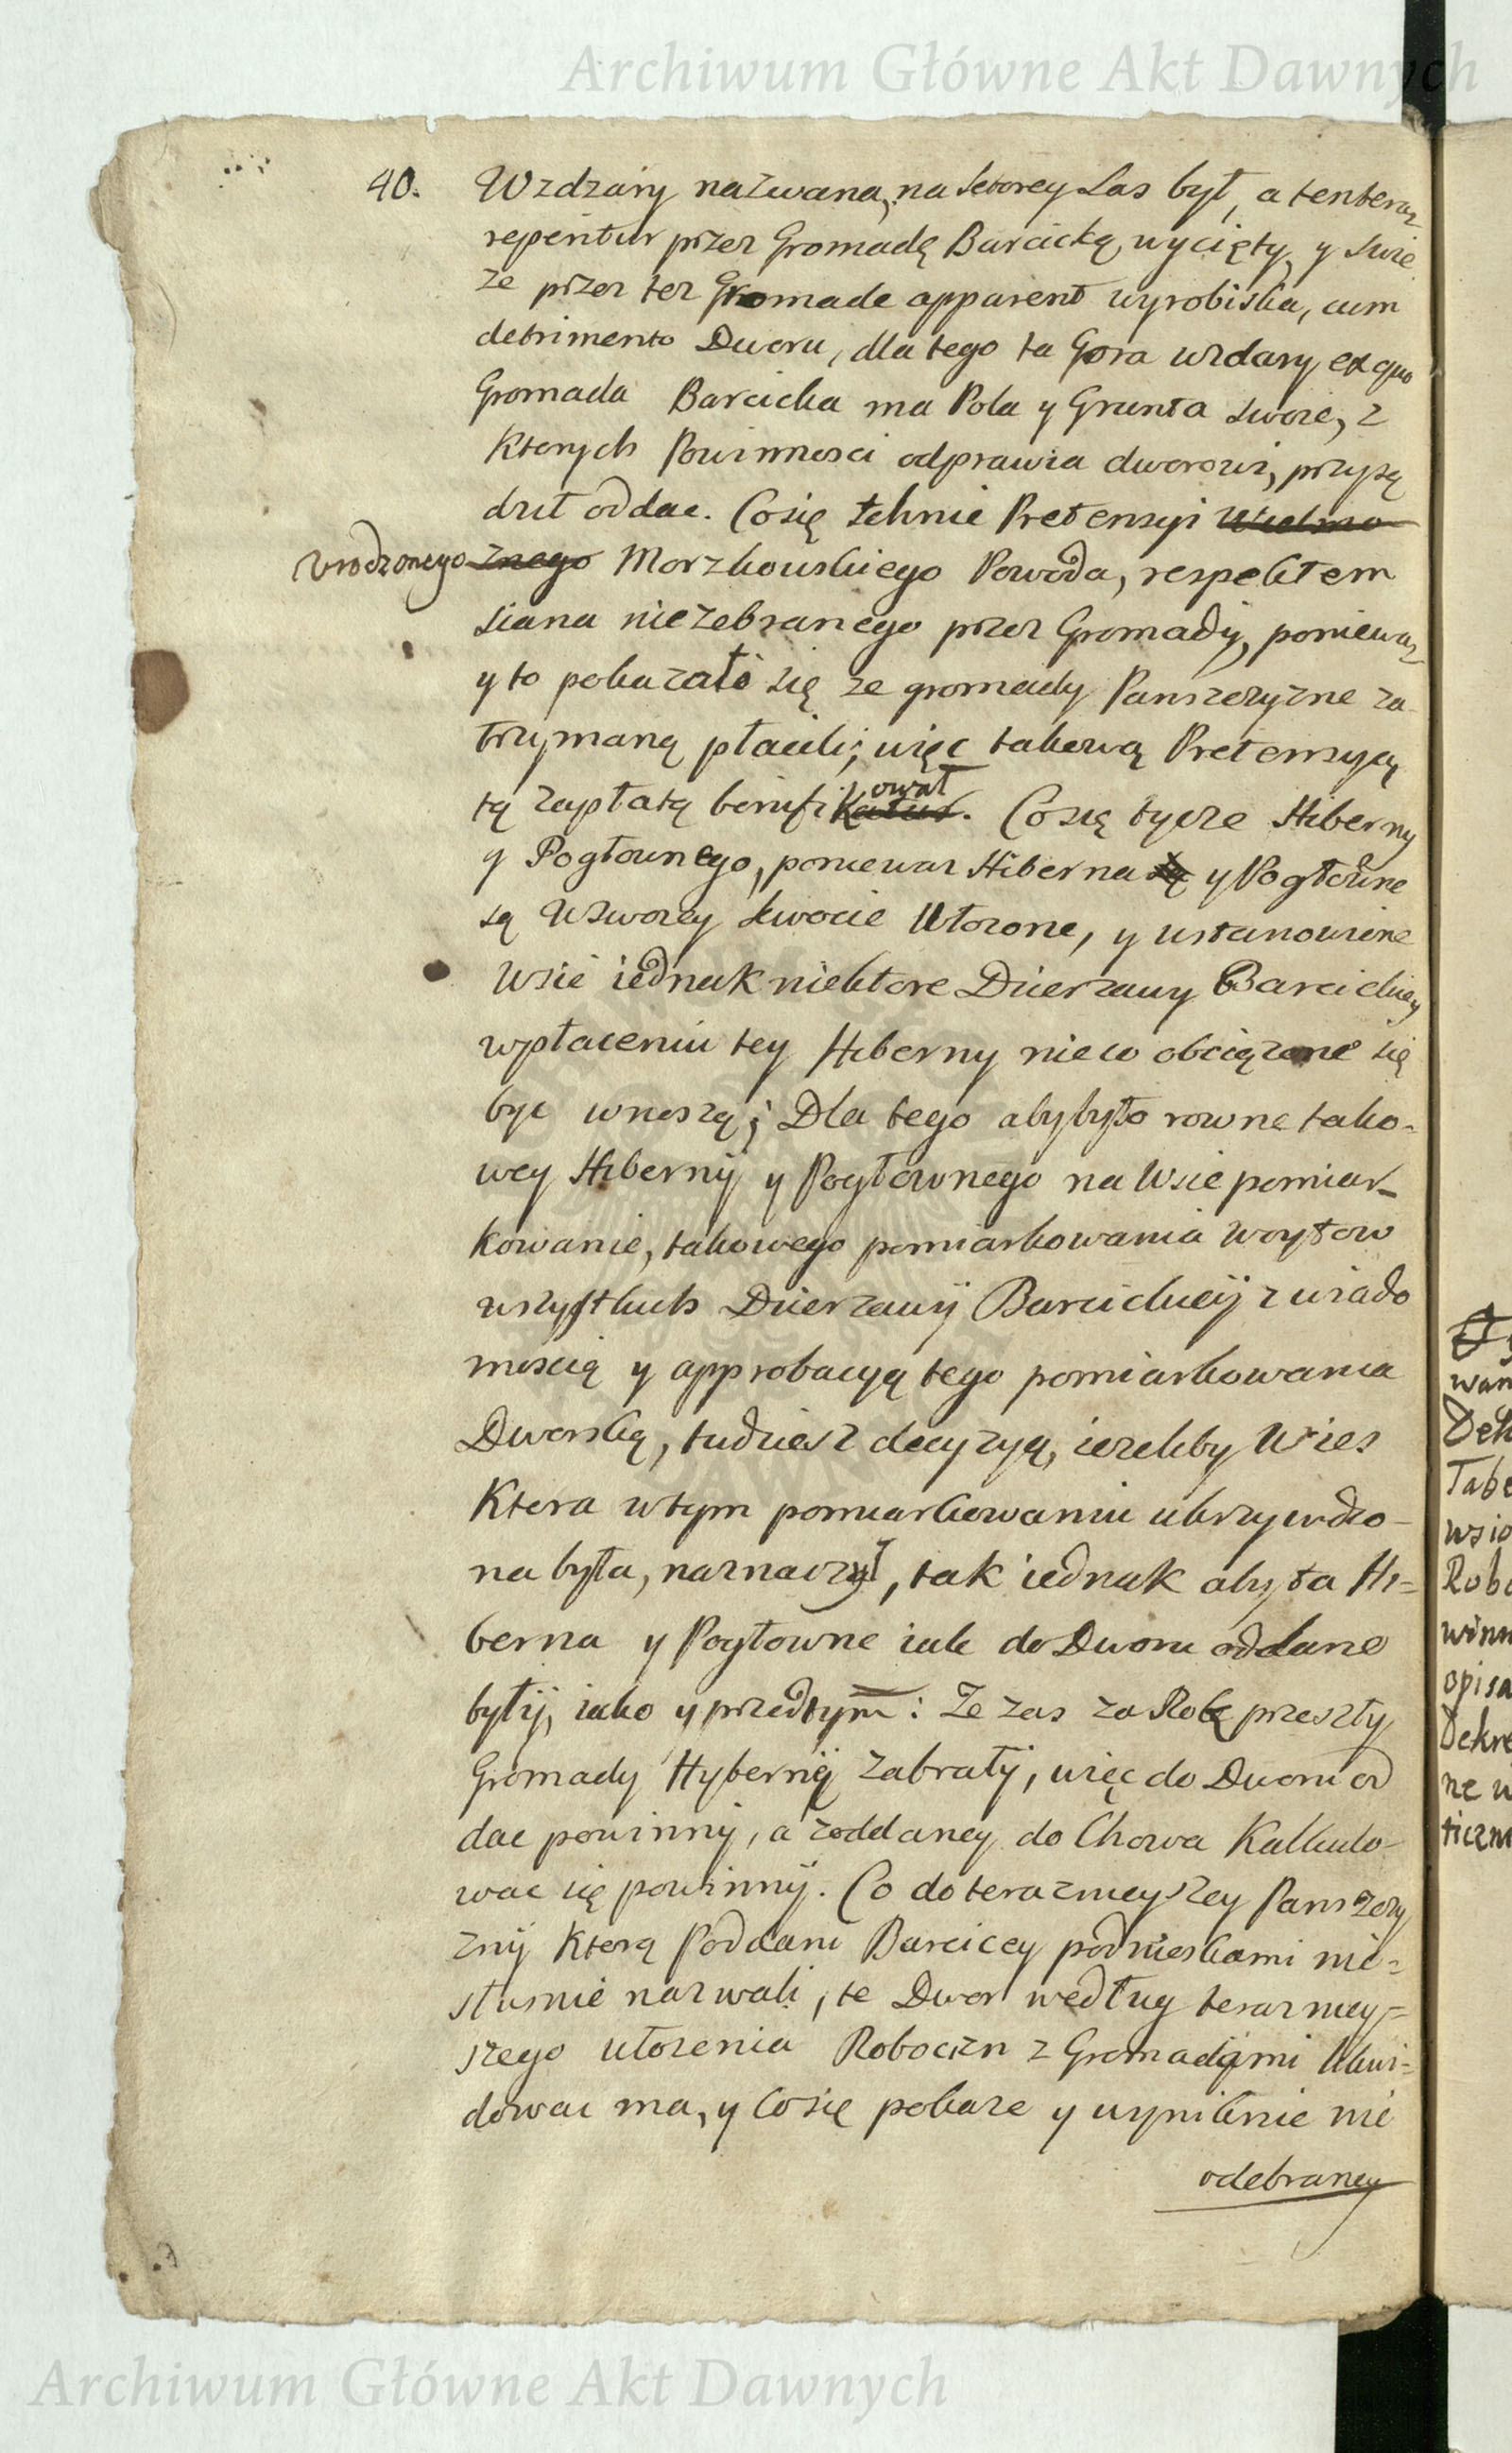 Archiwum Główne Akt Dawnych
40.
Wzdzary nazwana, na ktorey Las był, a ten teraz
reperitur przez Gromadę Barcicką wycięty, y swie
ze przez tez Gromade apparent wyrobiska, cum
detrimento Dworu, dla tego ta Gora wzdary ex quo
Gromada Barcicka ma Pola y Grunta swoie, z
Ktorych Powinnosci odprawia dworowi, przysą
dził oddac. Cosię tchnie Pretensyi Wielmo
Urodzonego znego Morzkowskiego Powoda, respektem
siana niezebranego przez Gromady, poniewaz
y to pokazało się ze gromady Panszczyzne za
trzymaną płacili; więc takową Pretensyą
tą zapłatą bonifikował. Cosię tycze Hiberny
y Pogłownego, poniewaz Hiberna są y Pogłowne
są wswoiey kwocie Ułozone, y ustanowione
Wsie iednak niektore Dzierzawy Barcickiey
wpłaceniu tey Hiberny nieco obciązone się
byc wnoszą; Dla tego aby było rowne tako-
wey Hiberny y Pogłownego na Wsie pomiar-
kowanie, takowego pomiarkowania Woytow
wszystkich Dzierzawy Barcickiey z wiado
moscią y approbacyą tego pomiarkowania
Dworską, tudziesz decyzyą, iezeliby Wies
Ktora wtym pomiarkowaniu ukrzywdzo-
na była, naznaczył, tak iednak aby ta Hi=
berna y Pogłowne iak do Dworu oddane
były, iako y przedtym: Ze zas za Rok przeszły
Gromady Hyberny zabrały, więc do Dworu od
dac powinny, a zoddaney do Chowa Kalkulo-
wac się powinny. Co do terazneyszey Panszczy
zny Ktorą Poddani Barciccy podnieskami nie=
słusznie nazwali, te Dwor według terazney=
szego ułozenia Robocizn z Gromadami likwi=
dowac ma, y Co się pokaze y wyniknie nie
odebraney
wan
Dek
Tabe
wsio
Robo
winn
opisa
Dekre
ne
ticzn
Archiwum Główne Akt Dawnych